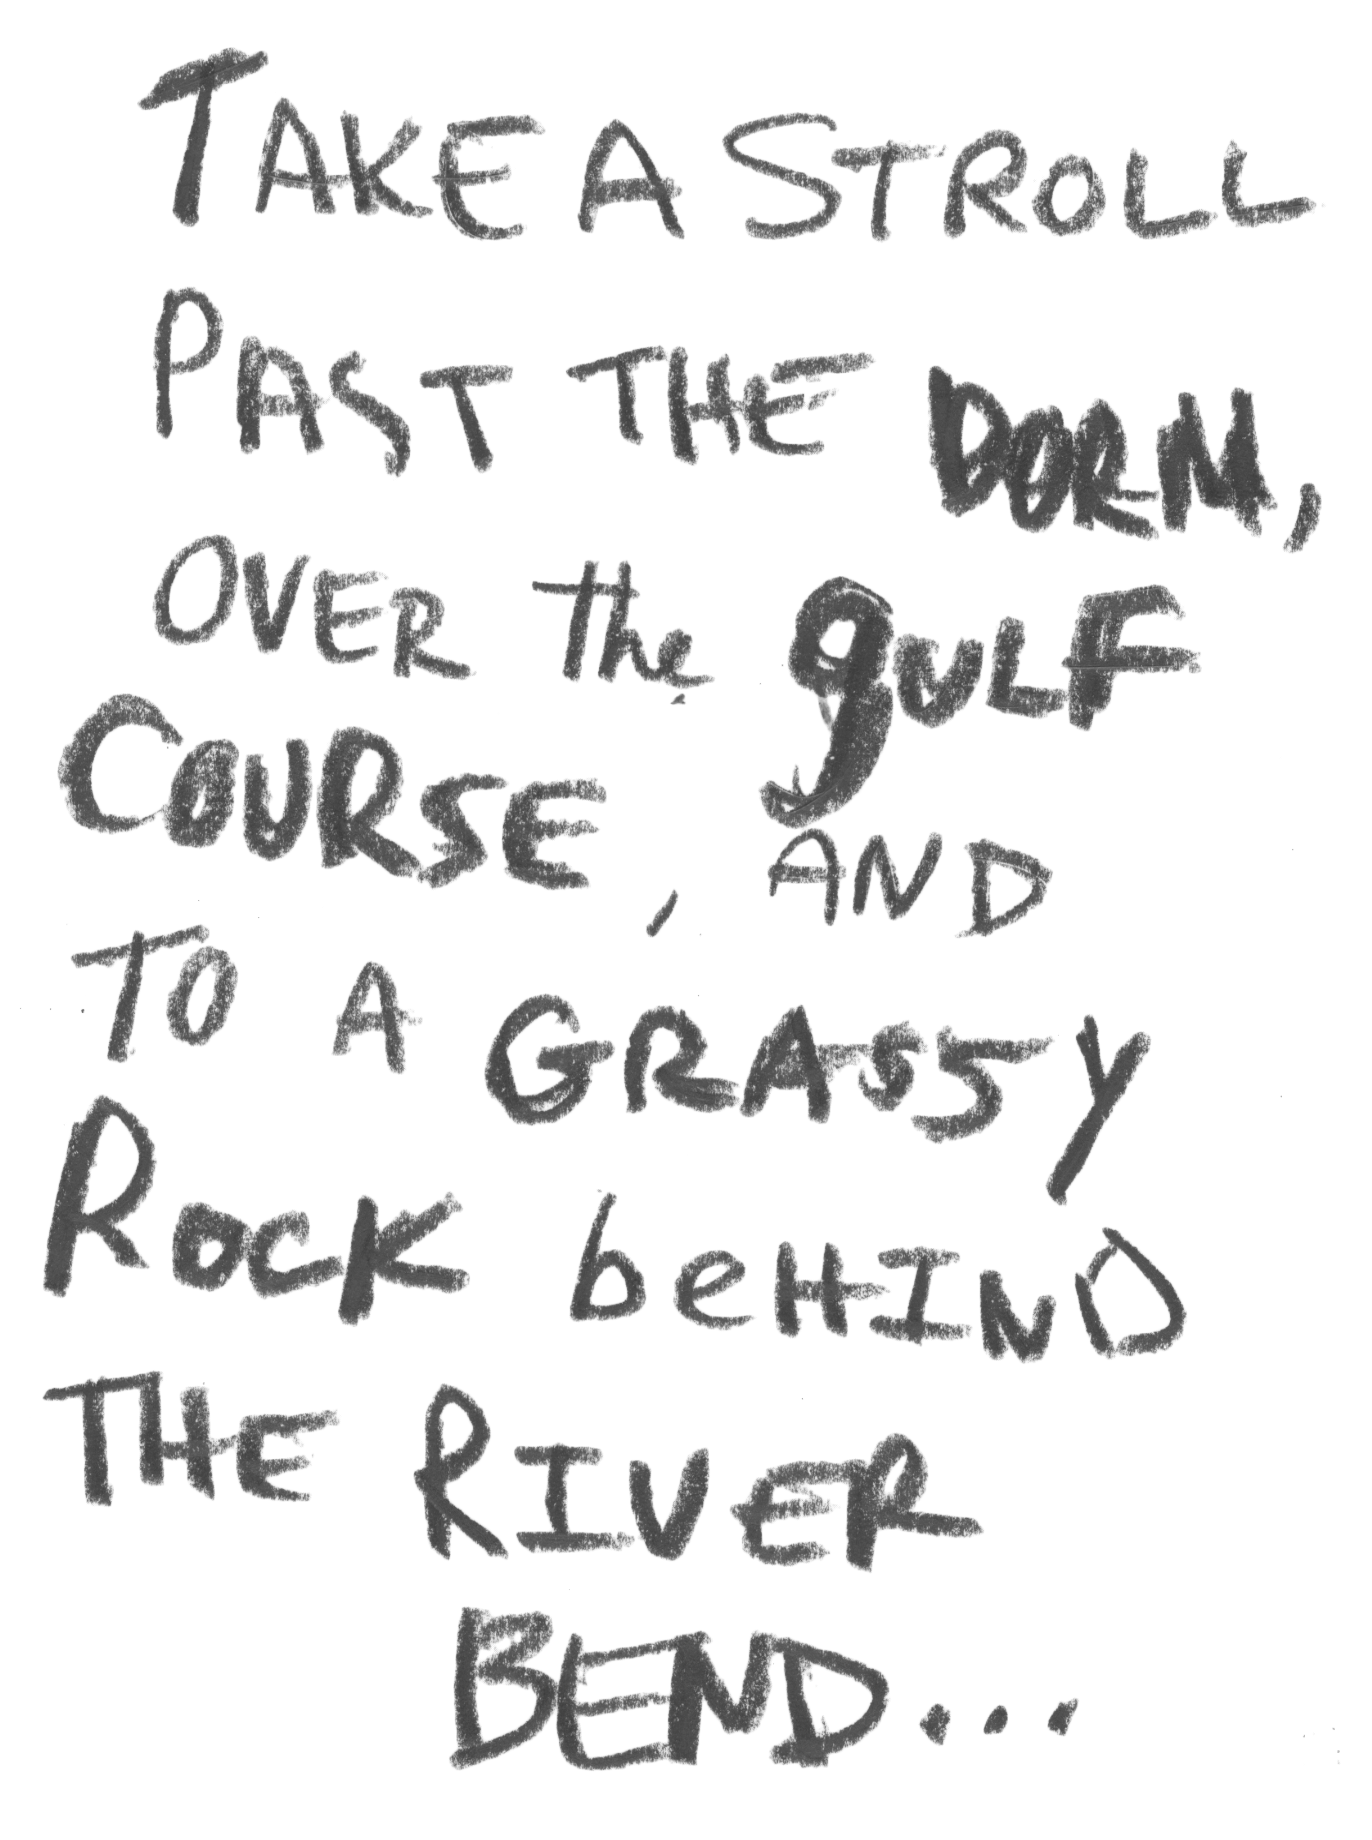 TAKE A STROLL
PAST THE DORM,
OVER the gULF
COURSE, AND
TO A GRASSY
ROCK beHIND
THE RIVER
BEND...